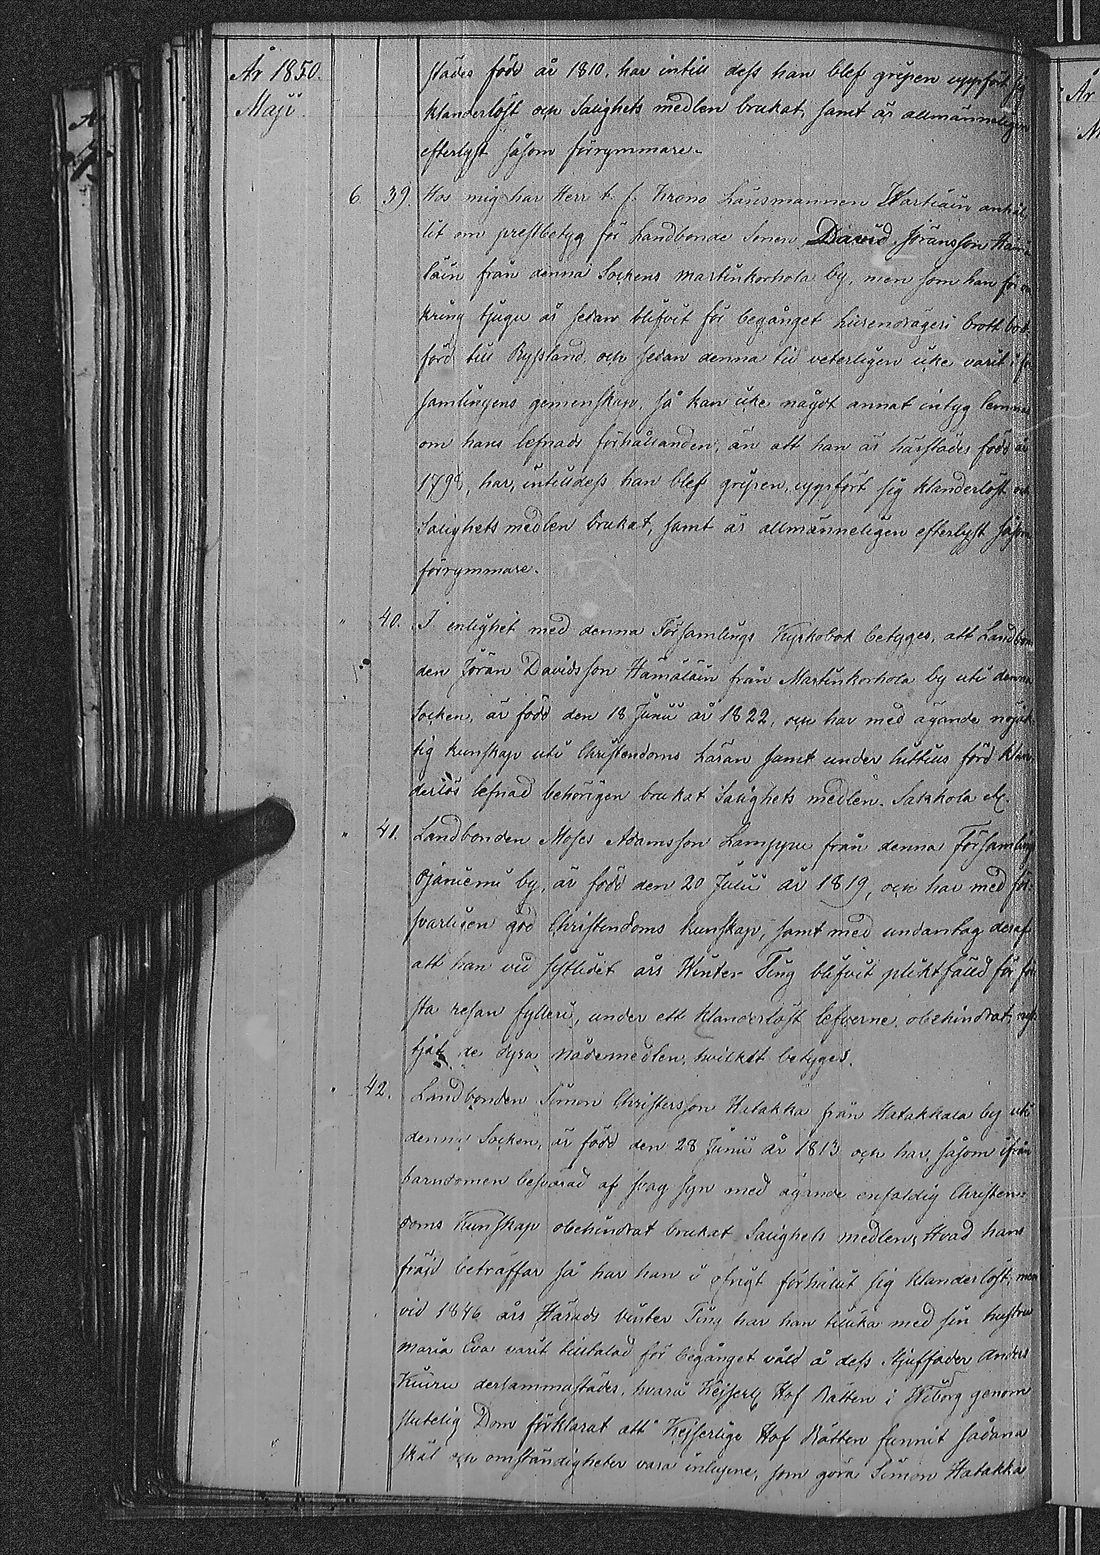 År 1850.
Maji
städes född år 1810, har intill dess han blef gripen uppfört sig
klanderlöst och Salighets medlen brukat, samt är allmänneligen
efterlyst såsom förrymmare.
6 39. Hos mig har Herr t. f. Krono Länsmannen Hartiain anhål-
lit om prestbetyg för Landbonde Sonen David Jöransson Hämä-
läin från denna Sockens Martinkorhola by, men som han för om-
kring tjugu år sedan blifvit för begånget lurendrägeri brott bort-
förd till Ryssland och sedan denna tid veterligen icke varit i för-
samlingens gemenskap, så kan icke något annat intyg lemnas
om hans lefnads förhållanden, än att han är härstädes född år
179, har, intilldess han blef gripen, uppfört sig klanderlöst och
Salighets medlen brukat, samt är allmänneligen efterlyst såsom
förrymmare.
" 40. I enlighet med denna Församlings Kyrkobok betyges, att Landbon-
den Jöran Davidsson Hämäläin från Martinkorhola by uti denna
Socken, är född den 18 Junii år 1822, och har med ägande nöjak-
tig kunskap uti Christendoms Läran samt under hittills förd klan-
derlös lefnad behörigen brukat Salighets medlen. Sakkola
" 41. Landbonden Moses Adamsson Lamppu från denna Församlings
by, är född den 20 Julii år 1819, och har med för-
svarligen god Christendoms kunskap, samt med undantag deraf
att han vid sistlidet års Winter Ting blifvit pliktfälld för för-
sta resan fylleri, under ett klanderlöst lefverne, obehindrat nytt-
tjat de dyra nådemedlen, hvilket betyges.
" 42. Landbonden Simon Christersson Hatakka från Hatakkala by uti
denna Socken, är född den 28 Junii år 1813 och har, såsom ifrån
barndomen besvärad af svag syn med ägande enfaldig Christen-
doms Kunskap obehindrat brukat Salighets medlen, Hvad hans
fräjd beträffar så har han i öfrigt förhållit sig klanderlöst, men
vid 1846 års Härads vinter Ting har han tillika med sin hustru
Maria Eva varit tilltalad för begånget våld å dess Styffader Anders
Kiuru dersammastädes, hvari Kejserlig Hof Rätten i Wiborg genom
slutelig Dom förklarat att Kejserlige Hof Rätten funnit sådana
skäl och omständigheter vara inlupne, som göra Simon Hatakka